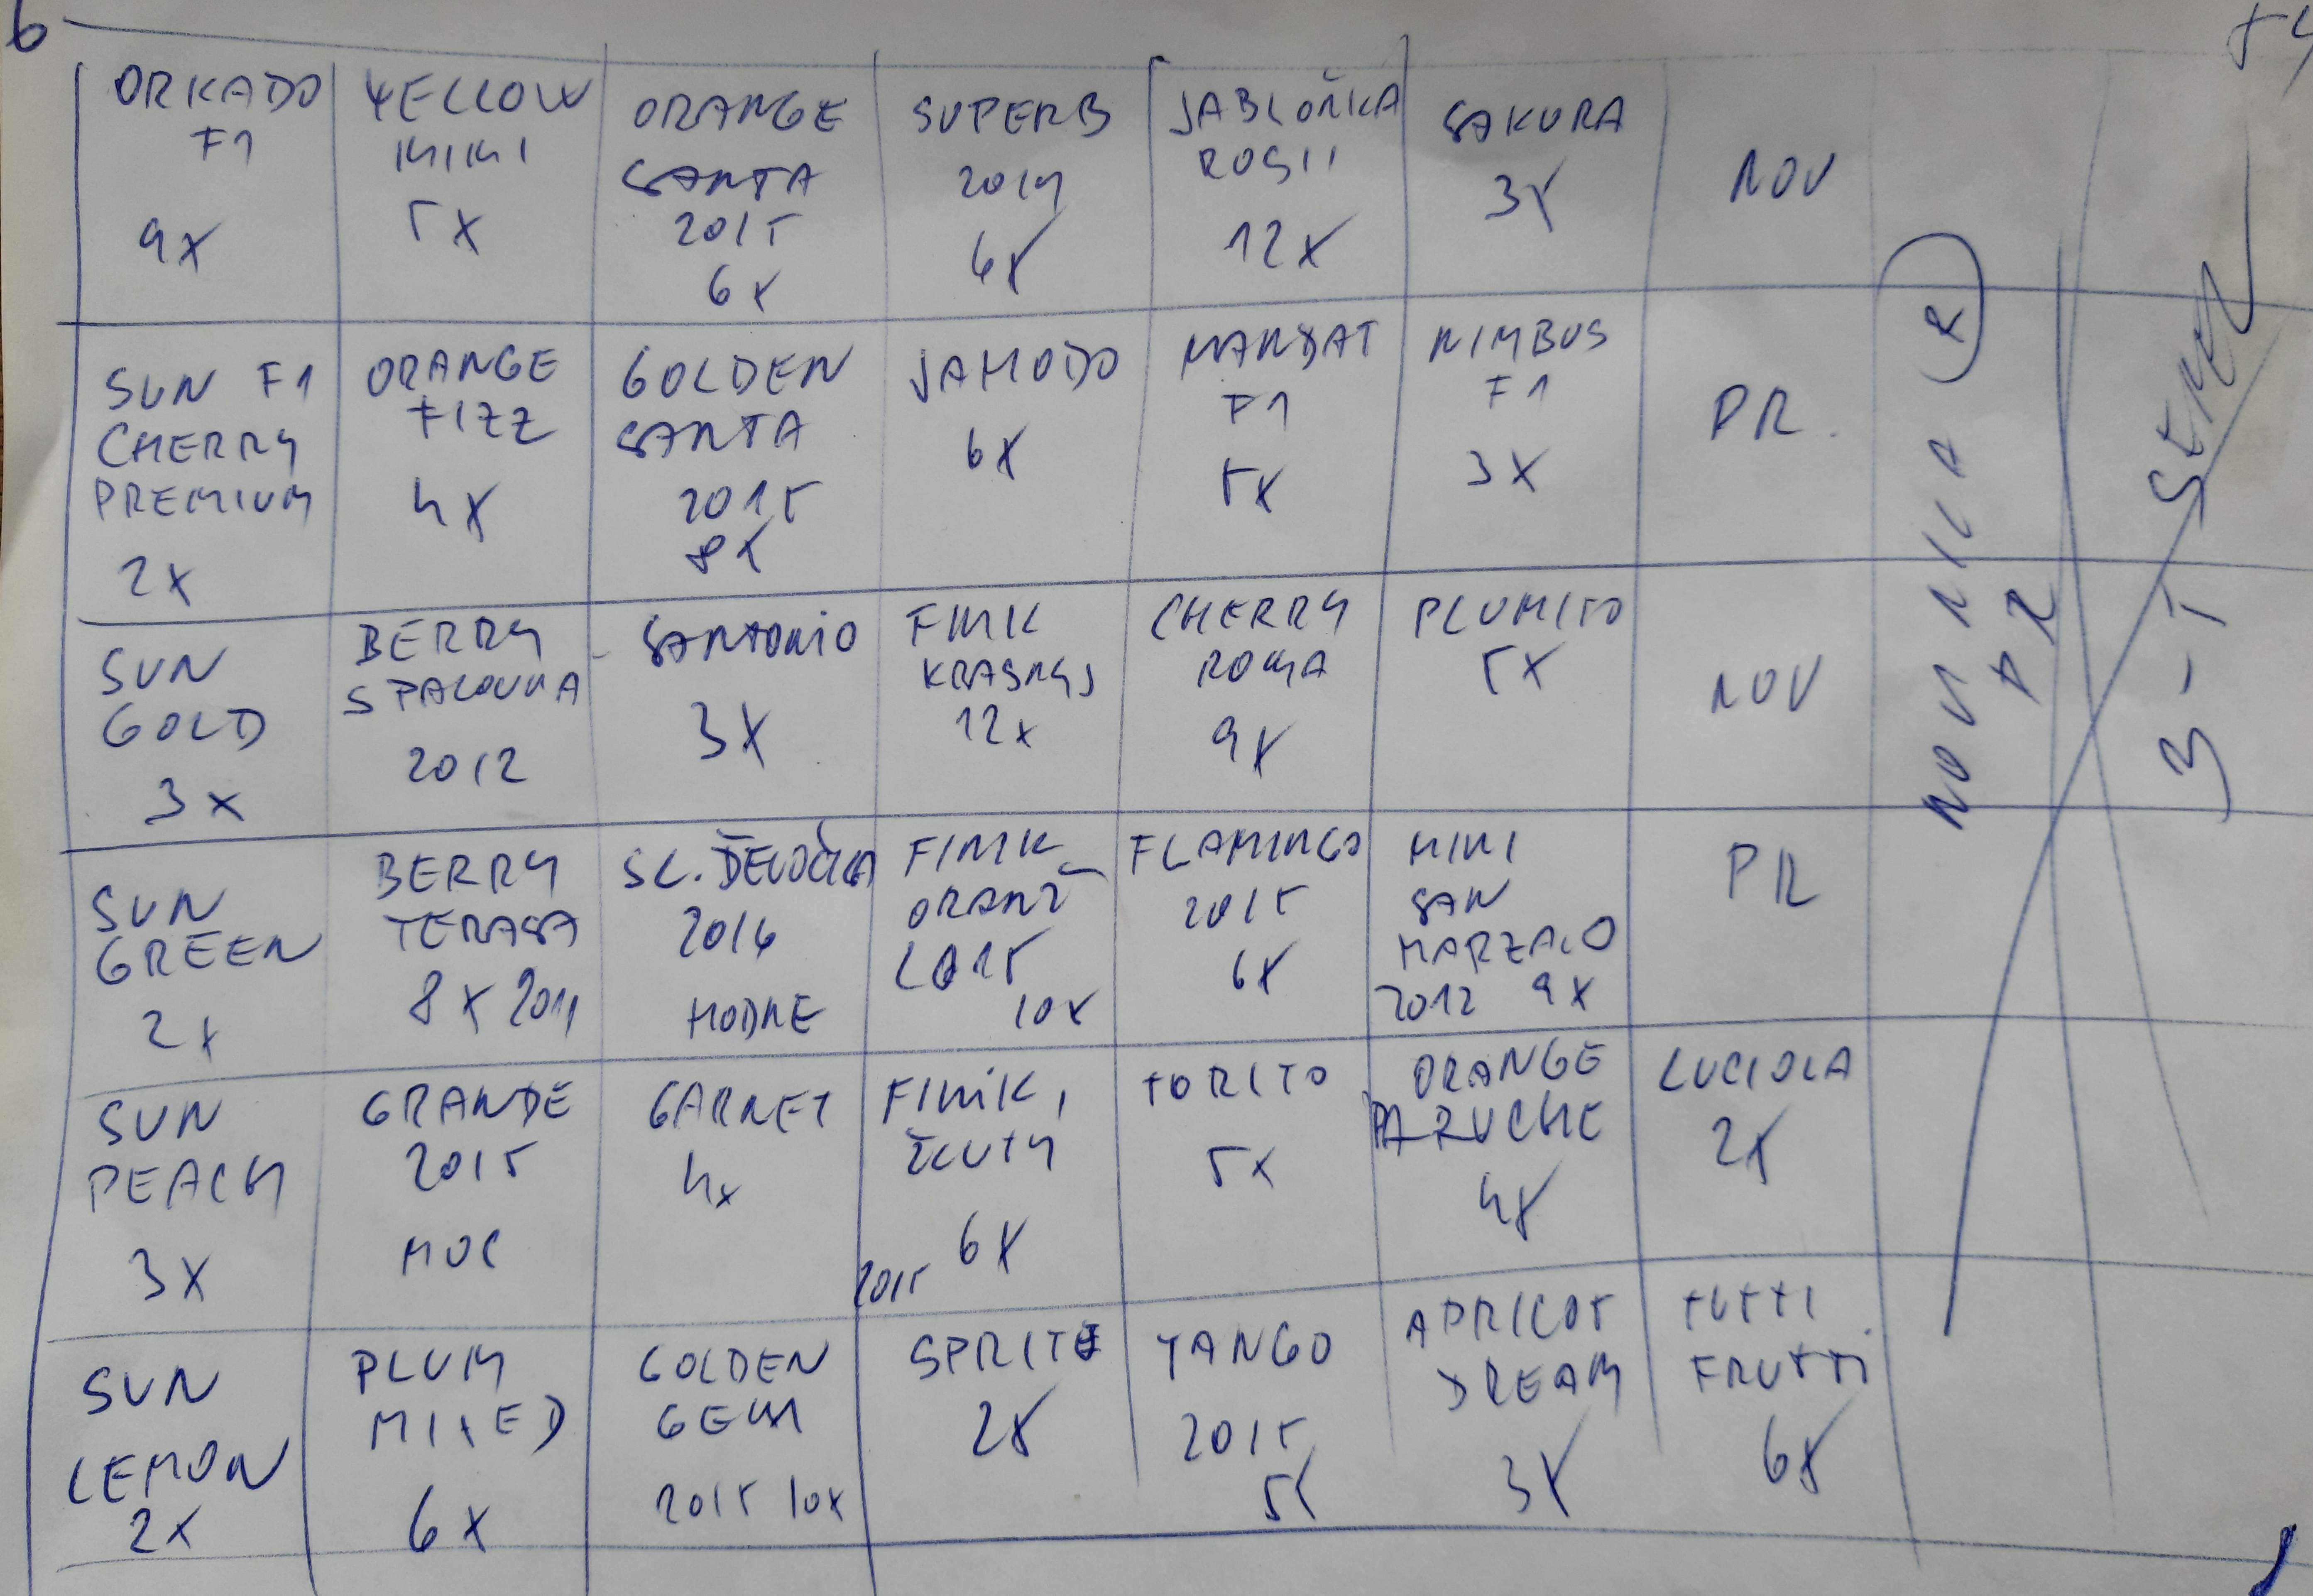 6
ORKADO
F1
9x
YELLOW
MIMI
5x
ORANGE
SANTA
2015
6x
SUPERB
2014
6x
JABLOŇKA
ROSII
12x
SAKURA
3x
NOV
SUN F1
CHERRY
PREMIUM
2x
ORANGE
FIZZ
4x
GOLDEN
SANTA
2015
8x
JAMODO
6x
MANDAT
F1
5x
NIMBUS
F1
3x
PR.
SUN
GOLD
3x
BERRY
2012
SANTONIO
3x
FINIK
KRASNYJ
12x
CHERRY
ROMA
9x
PLUMITO
5x
NOV
SUN
GREEN
2x
BERRY
TERASA
8x 2011
SL. ĎEVOČKA
2014
HODNE
FINIK
ORANŽ
2015
10x
FLAMINGO
2015
6x
MINI
SAN
MARZANO
2012 9x
PR
SUN
PEACH
3x
GRANDE
2015
MOC
GARNET
4x
FINIK
ŽLUTY
6x
2015
TORITO
5x
ORANGE
PARUCHE
4x
LUCIOLA
2x
SUN
LEMON
2x
PLUM
MIXED
6x
GOLDEN
GEM
2015 10x
SPRITE
2x
TANGO
2015
5x
APRICOT
DREAM
3x
TUTTI
FRUTTI
6x
R
PR
3-5